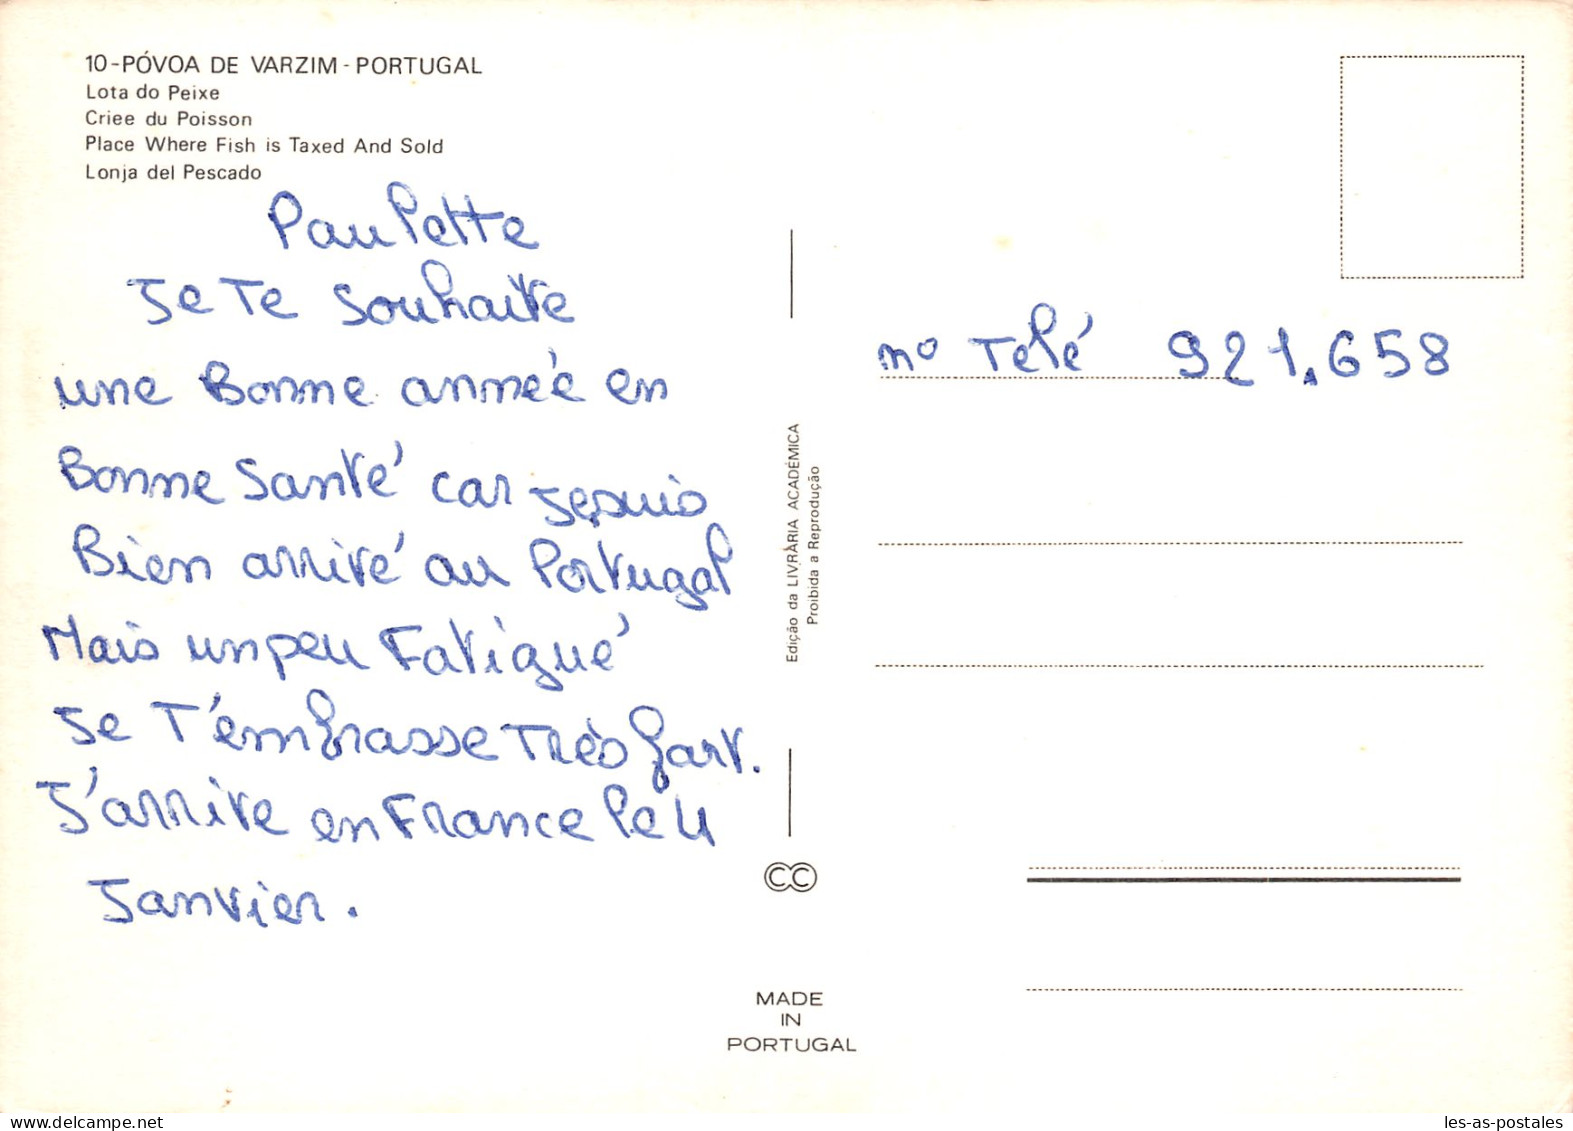 10-PÓVOA DE VARZIM - PORTUGAL
Lota do Peixe
Criee du Poisson
Place Where Fish is Taxed And Sold
Lonja del Pescado
Paulette
Je Te souhaite
une Bonne année en
Bonne Santé car je suis
Bien arrivé au Portugal
Mais un peu Fatigué
Je T'émbrasse Très fort.
J'arrive en France le 4
Janvier.
Edição da LIVRÀRIA ACADÉMICA
Proibida a Reprodução
CC
MADE
IN
PORTUGAL
nº Telé 921.658
les-as-postales